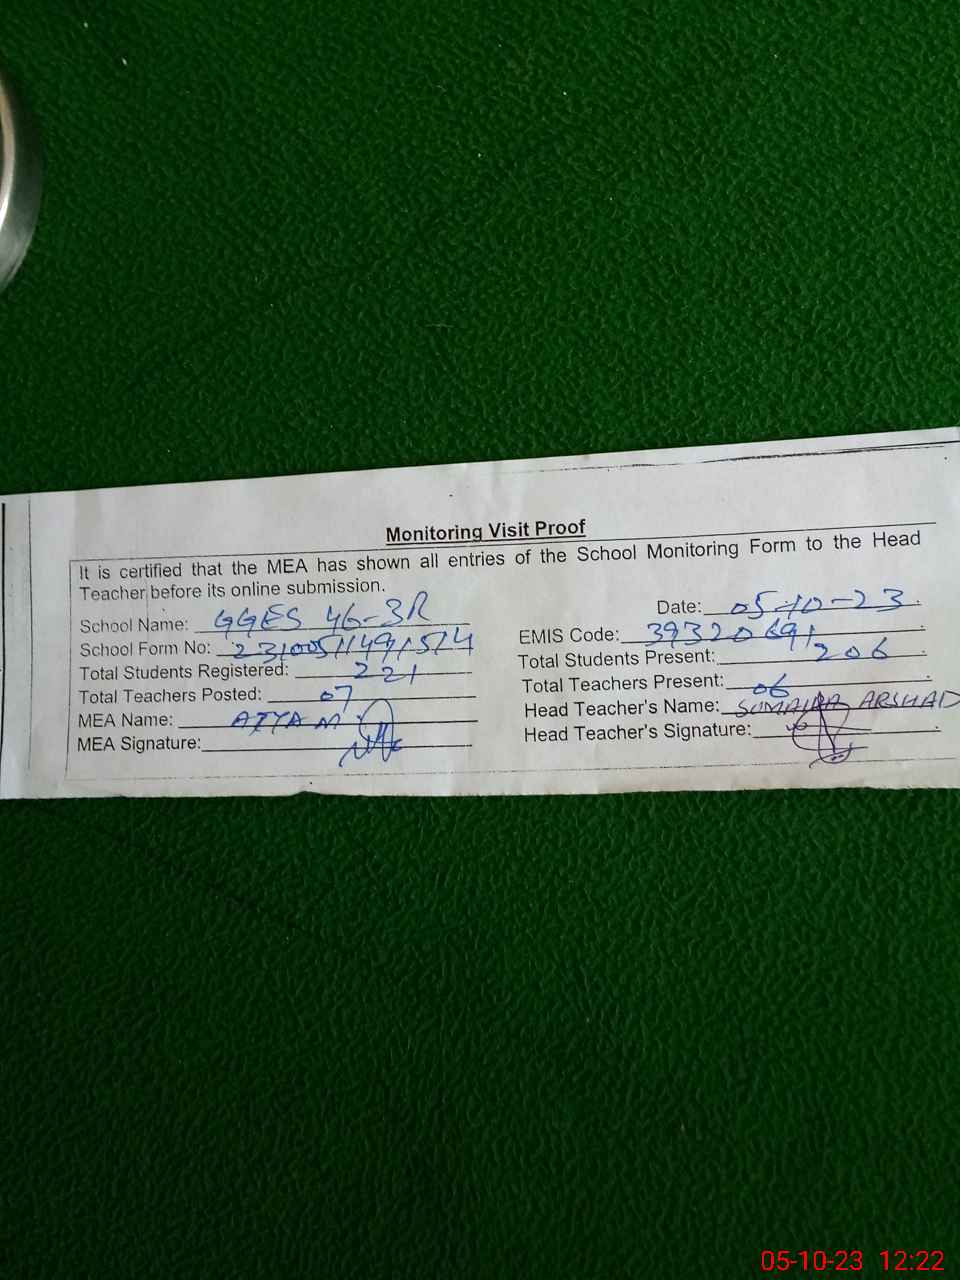 Monitoring Visit Proof
It is certified that the MEA has shown all entries of the School Monitoring Form to the Head
Teacher before its online submission.
School Name: GGES 46-3R
Date: 05-10-23
School Form No: 231005114915/4
EMIS Code: 39320691
Total Students Registered: 221
Total Students Present: 206
Total Teachers Posted: 07
Total Teachers Present: 06
MEA Name: M
Head Teacher's Name: SUMAIRA ARSHAD
MEA Signature:
Head Teacher's Signature:
05-10-23 12:22